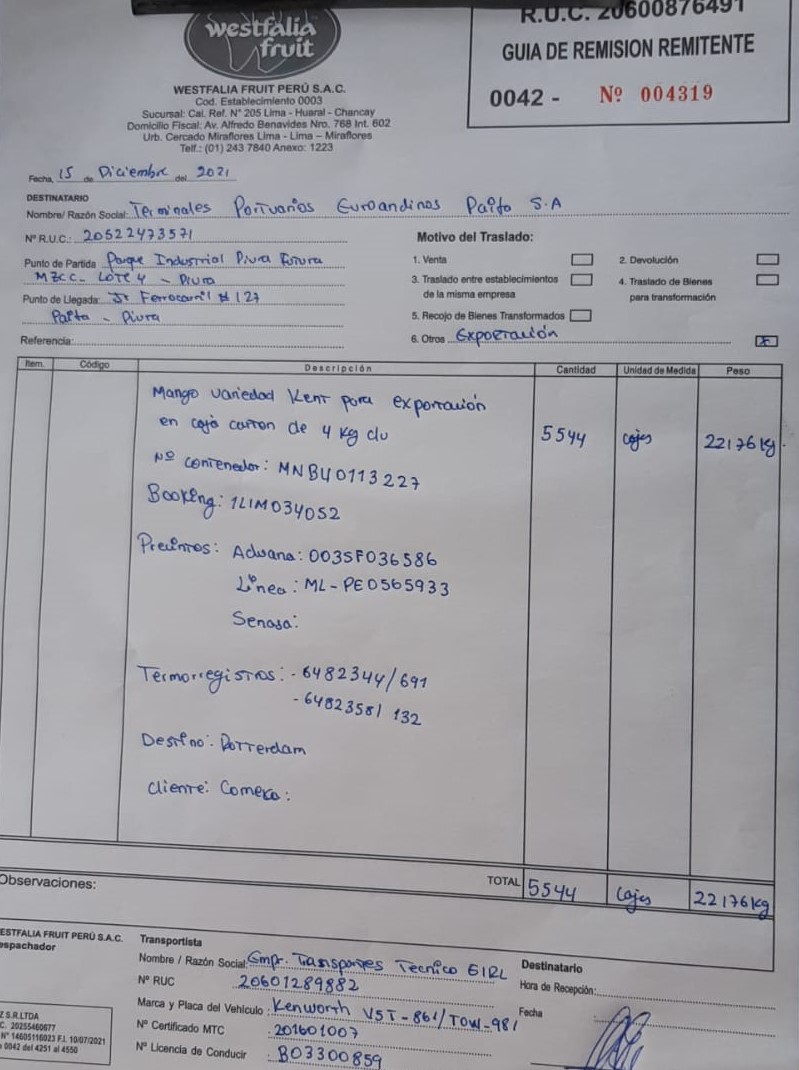 westfalia
fruit
WESTFALIA FRUIT PERÚ S.A.C.
Cod. Establecimiento 0003
Sucursal: Cal. Ref. N° 205 Lima - Huaral - Chancay
Domicilio Fiscal: Av. Alfredo Benavides Nro. 768 Int. 602
Urb. Cercado Miraflores Lima - Lima – Miraflores
Telf.: (01) 243 7840 Anexo: 1223
R.U.C. 20600876491
GUIA DE REMISION REMITENTE
0042 - Nº 004319
Fecha, 15 de Diciembre del 2021
DESTINATARIO
Nombre/ Razón Social: Terminales Portuarios Euroandinos Paita S.A
Nº R.U.C.: 20522473571
Punto de Partida Parque Industrial Piura Futura
MZCC- LOTE 4 - Piura
Punto de Llegada: Jr Ferrocarril # 127
Paita - Piura
Referencia:
Motivo del Traslado:
1. Venta
2. Devolución
3. Traslado entre establecimientos
de la misma empresa
4. Traslado de Bienes
para transformación
5. Recojo de Bienes Transformados
6. Otros Exportación X
Item. Código Descripción Cantidad Unidad de Medida Peso
Mango variedad Kent para exportación
en caja carton de 4 Kg c/u 5544 cajas 22176 kg.
Nº contenedor: MNBU0113227
Booking: 1LIM034052
Precintos: Aduana: 0035F036586
Línea: ML-PE0565933
Senasa:
Termorregistros: - 6482344/691
- 6482358/ 132
Destino: Rotterdam
Cliente: Comexa:
TOTAL 5544 cajas 22176 kg
Observaciones:
ESTFALIA FRUIT PERÚ S.A.C.
espachador
Transportista
Nombre / Razón Social: Empr. Transportes Tecnico EIRL
Nº RUC 20601289882
Marca y Placa del Vehículo: Kenworth V5T-861/TOW-981
Nº Certificado MTC 201601007
Nº Licencia de Conducir B03300859
Destinatario
Hora de Recepción:
Fecha
Z S.R.LTDA
C. 20255460677
N° 14605116023 F.I. 10/07/2021
0042 del 4251 al 4550